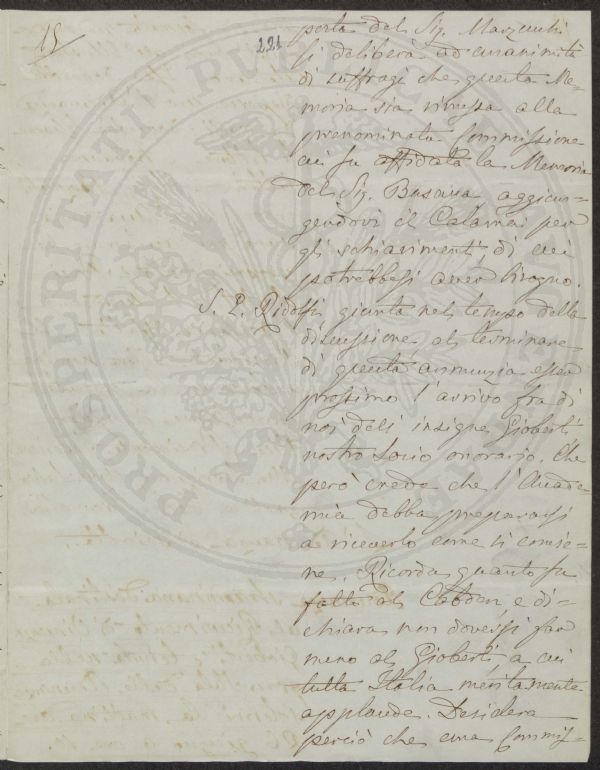 15
221
posta del Sig. Marzucchi
si delibera ad unanimità
di suffragj che questa Me-
moria sia rimessa alla
prenominata Commissione
cui fu affidata la Memoria
del Sig. Busacca aggiun-
gendovi il Calamai per
gli schiarimenti di cui
potrebbesi aver bisogno.
S. E. Ridolfi giunta nel tempo della
discussione al terminare
di questa annunzia esser
prossimo l'arrivo fra di
noi dell'insigne Gioberti
nostro Socio onorario. Che
però crede che l'Accade
mia debba prepararsi
a riceverlo come si convie-
ne. Ricorda quanto fu
fatto al Cobden, e di-
chiara non doversi far
meno al Gioberti a cui
tutta Italia meritamente
applaude. Desidera
perciò che una Commis-
PROSPERITATI PUBLICAE